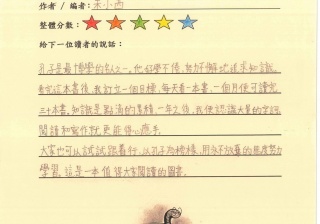 作者 / 編者：朱小西
整體分數：
給下一位讀者的說話：
孔子是最博學的名人之一。他好學不倦，努力不懈地追求知識。
看完這本書後，我訂立一個目標，每天看一本書，一個月便可讀完
三十本書。知識是點滴的累積，一年之後，我便認識大量的字詞，
閱讀和寫作就更能得心應手。
大家也可以試試跟着行，以孔子為榜樣，用永不放棄的態度努力
學習。這是一本值得大家閱讀的圖書。